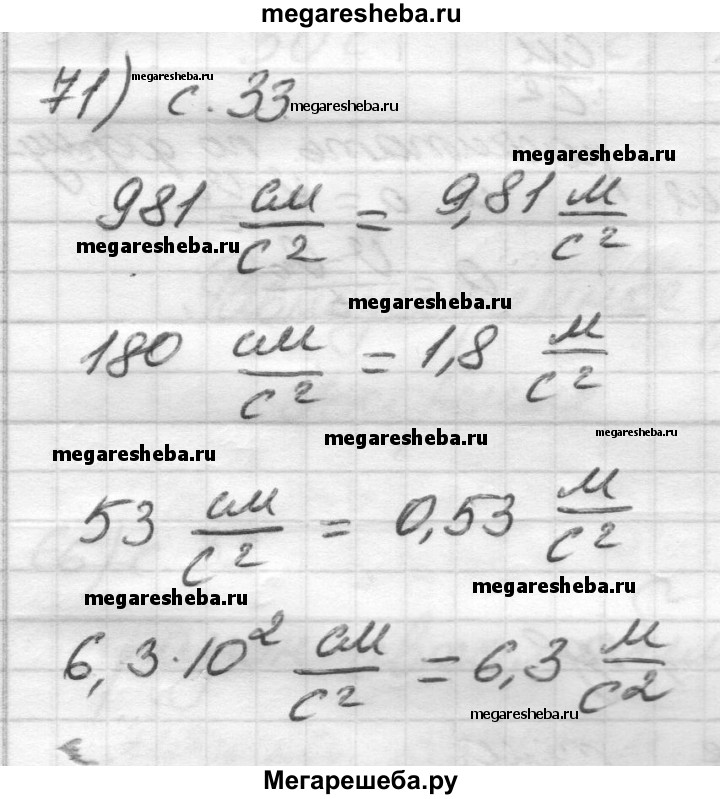 megaresheba.ru
71) с. 33
megaresheba.ru
megaresheba.ru
megaresheba.ru
981 см/с² = 9,81 м/с²
megaresheba.ru
megaresheba.ru
180 см/с² = 1,8 м/с²
megaresheba.ru
megaresheba.ru
megaresheba.ru
53 см/с² = 0,53 м/с²
megaresheba.ru
megaresheba.ru
6,3·10² см/с² = 6,3 м/с²
megaresheba.ru
Мегарешеба.ру